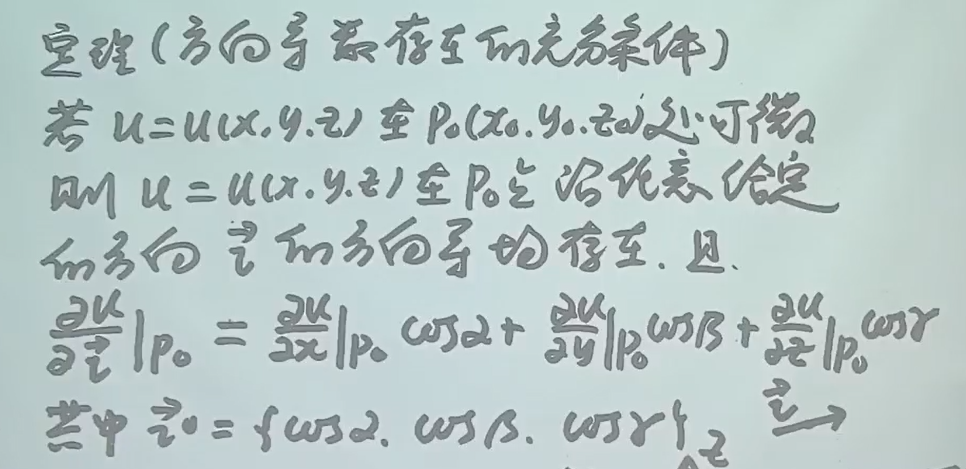 定理(方向导数存在的充分条件)
若 u=u(x.y.z) 在 P₀(x₀.y₀.z₀)处可微
则 u=u(x.y.z) 在P₀点 沿任意给定
的方向 l⃗ 的方向导均存在. 且.
∂u/∂l⃗|P₀ = ∂u/∂x|P₀ cosα + ∂u/∂y|P₀ cosβ + ∂u/∂z|P₀ cosγ
其中 l⃗⁰ = {cosα. cosβ. cosγ} l⃗ →
z